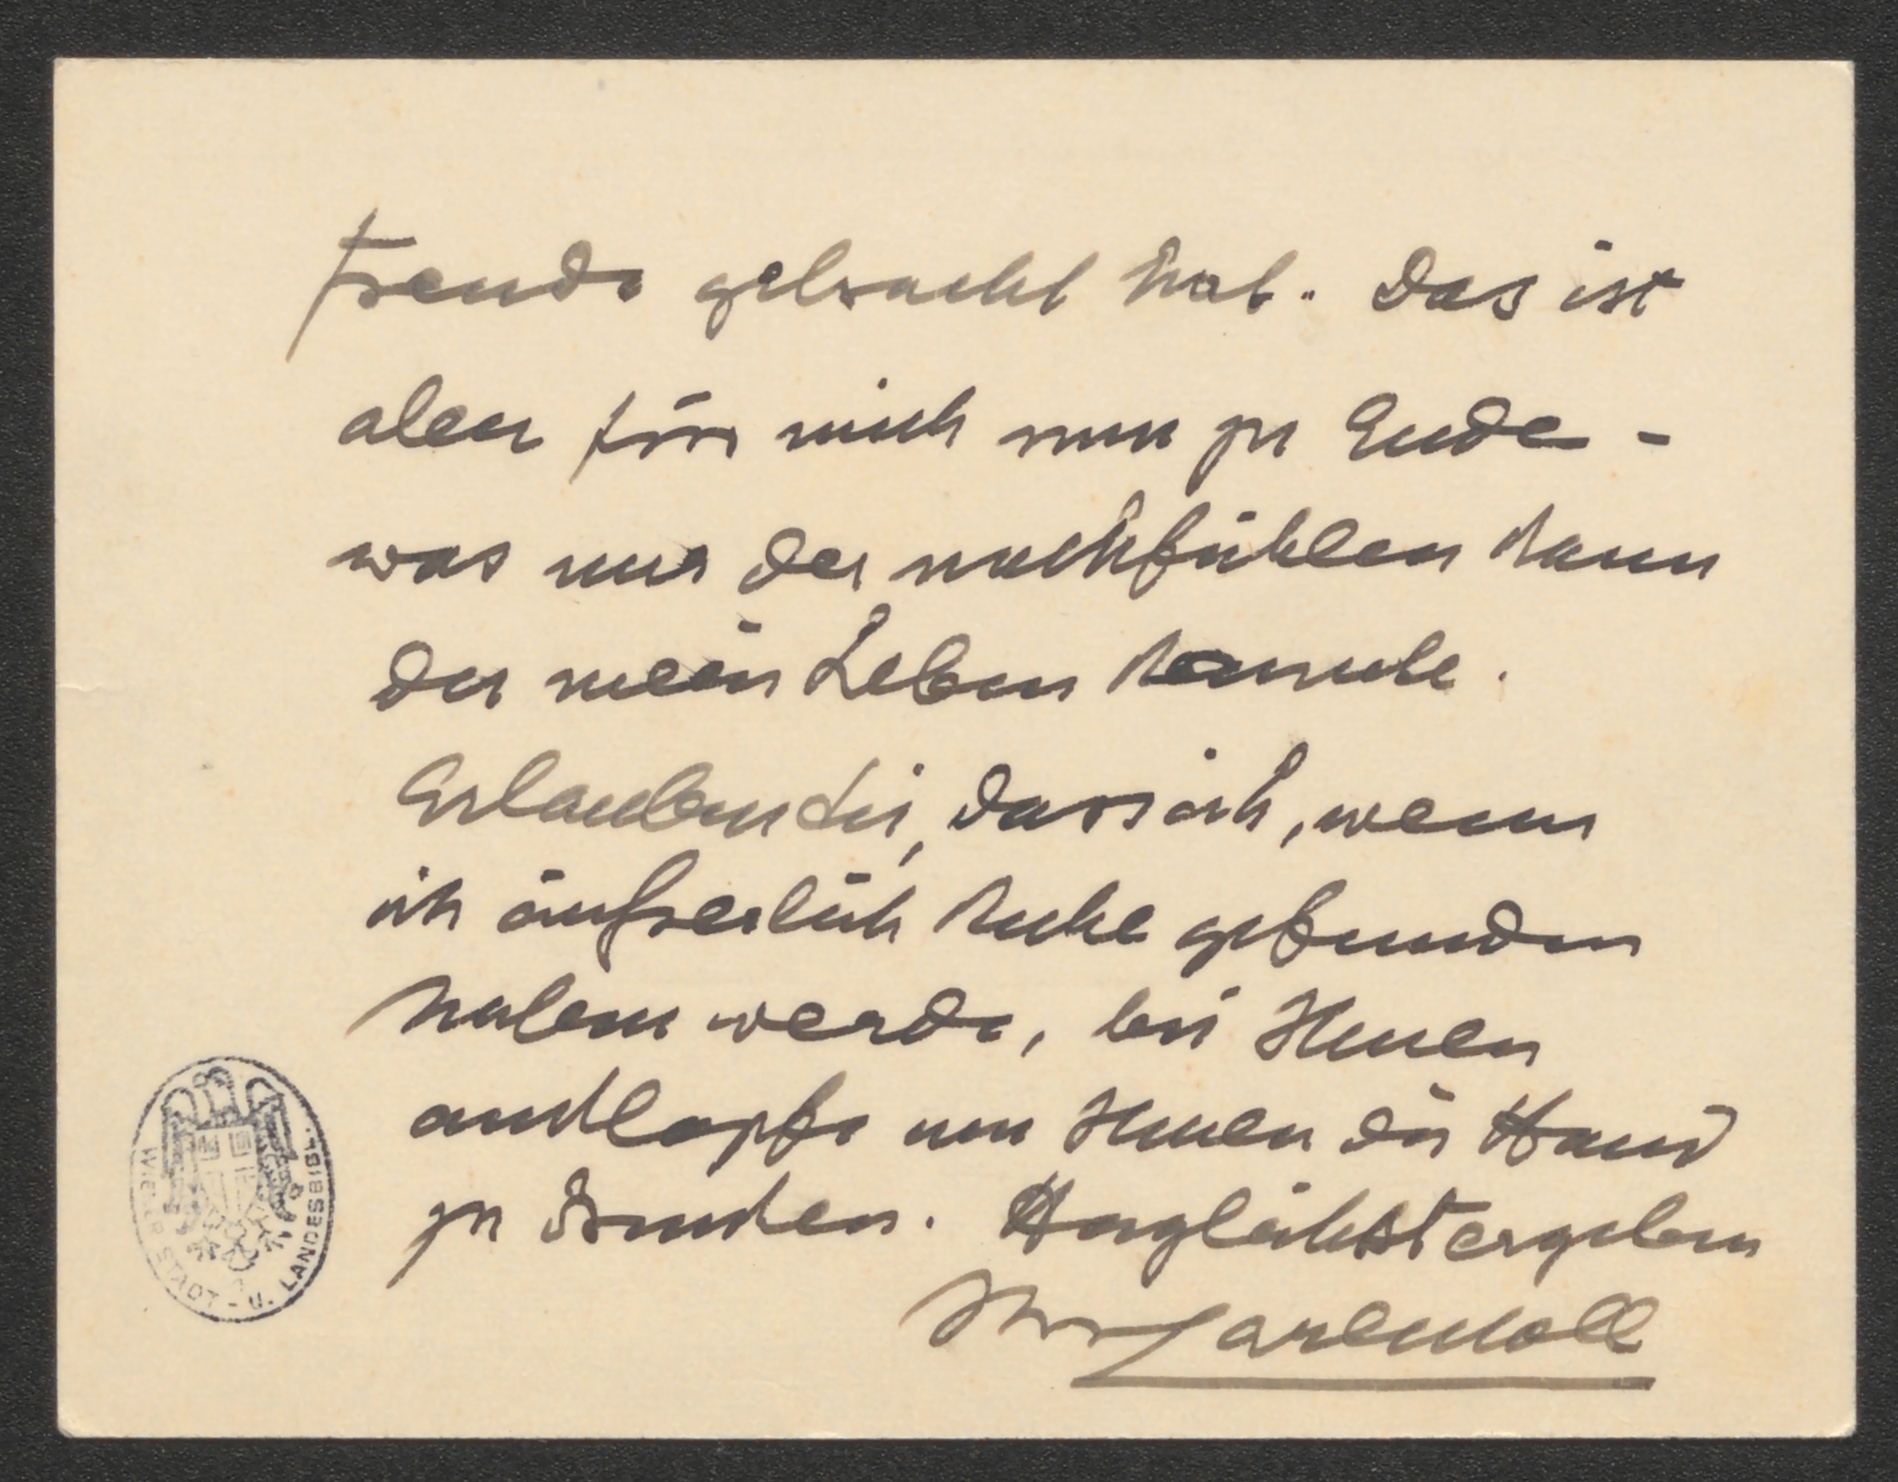 Freude gebracht hat. Das ist
aber für mich nun zu Ende -
was nur der nachfühlen kann
der mein Leben kannte.
Erlauben Sie, dass ich, wenn
ich äußerlich Ruhe gefunden
haben werde, bei Ihnen
anklopfe um Ihnen die Hand
zu drücken. Herzlichst ergeben
Ihr Carl Moll
WIENER STADT - U. LANDESBIBL.